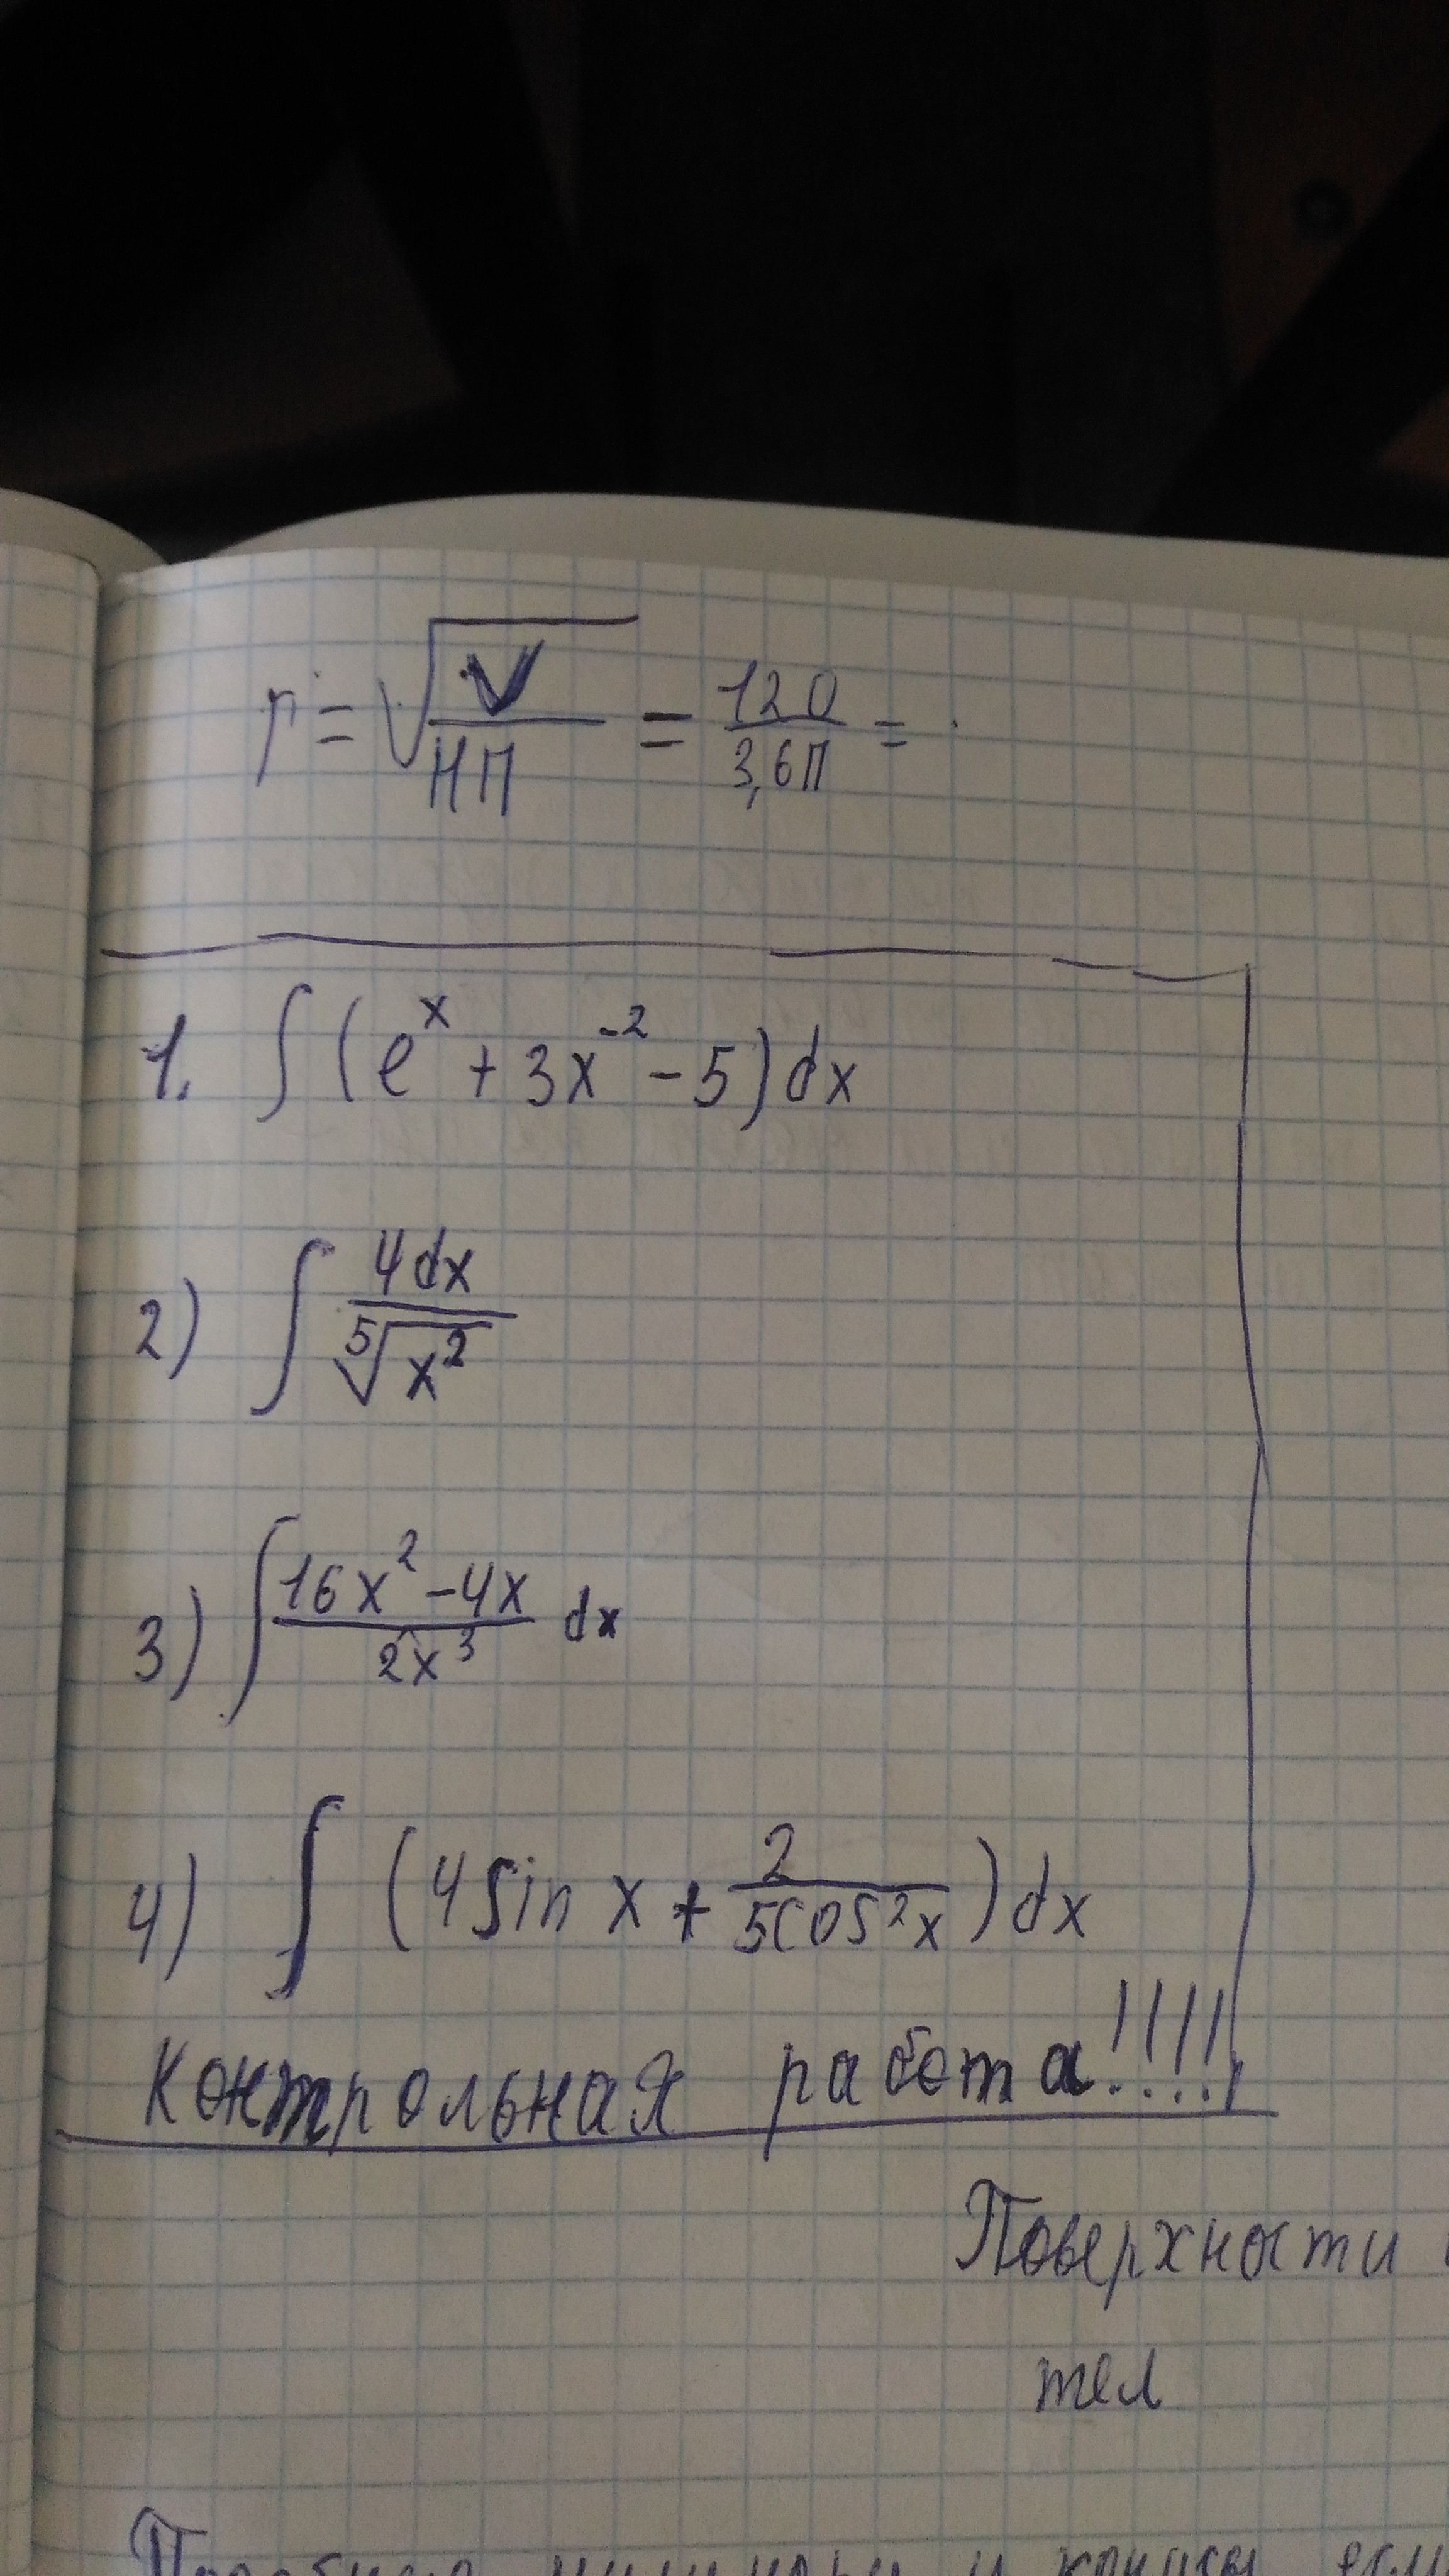 r = √(V/HП) = 120/3,6П =
1. ∫ (eˣ + 3x⁻² - 5) dx
2) ∫ 4dx/⁵√x²
3) ∫ 16x² - 4x/2x³ dx
4) ∫ (4 sin x + 2/5cos²x) dx
Контрольная работа!!!!
Поверхности
тел